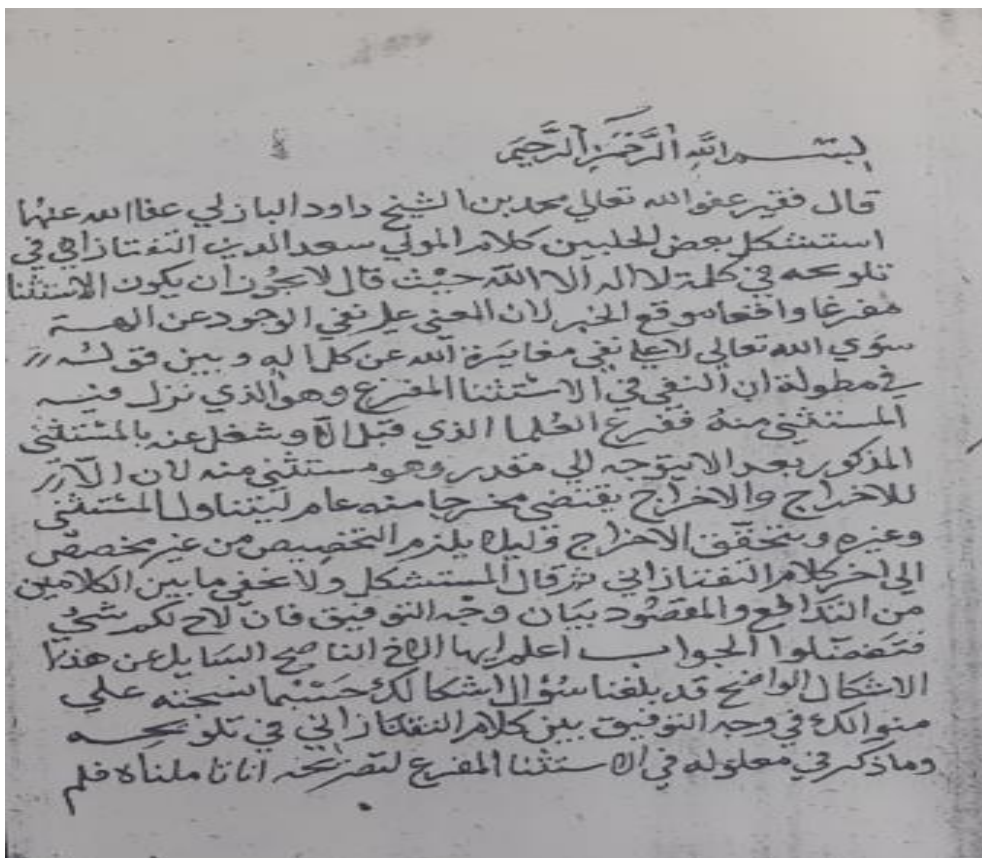 بسم الله الرحمن الرحيم
قال فقير عفو الله تعالي محمد بن الشيخ داود البازلي عفا الله عنهما
استشكل بعض الحلبيين كلام المولي سعد الدين التفتازاني في
تلويحه في كلمة لا اله الا الله حيث قال لا يجوز ان يكون الاستثنا
مفرغا واقعا موقع الخبر لان المعني علي نفي الوجود عن الهة
سوي الله تعالي لا علي نفي مغايرة الله عن كل اله وبين قوله
في مطوله ان النفي في الاستثنا المفرغ وهو الذي نزل فيه
المستثني منه ففرغ الذي قبل الا وشغل عنه بالمستثني
المذكور بعد الا يتوجه الي مقدر وهو مستثني منه لان الا
للاخراج والاخراج يقتضي مخرجا منه عام ليتناول المستثني
وغيره ويتحقق الاخراج قليلا يلزم التخصيص من غير مخصص
الي اخر كلام التفتازاني ثم قال المستشكل ولا يخفي ما بين الكلامين
من التدافع والمقصود بيان وجه التوفيق فان لاح لكم شيء
فتفضلوا الجواب اعلم ايها الاخ الناصح السايل عن هذا
الاشكال الواضح قد بلغنا سؤال اشكالك حسبما نسجته علي
منوالك في وجه التوفيق بين كلام التفتازاني في تلويحه
وما ذكر في معلوله في الاستثنا المفرغ انا تاملناه فلم